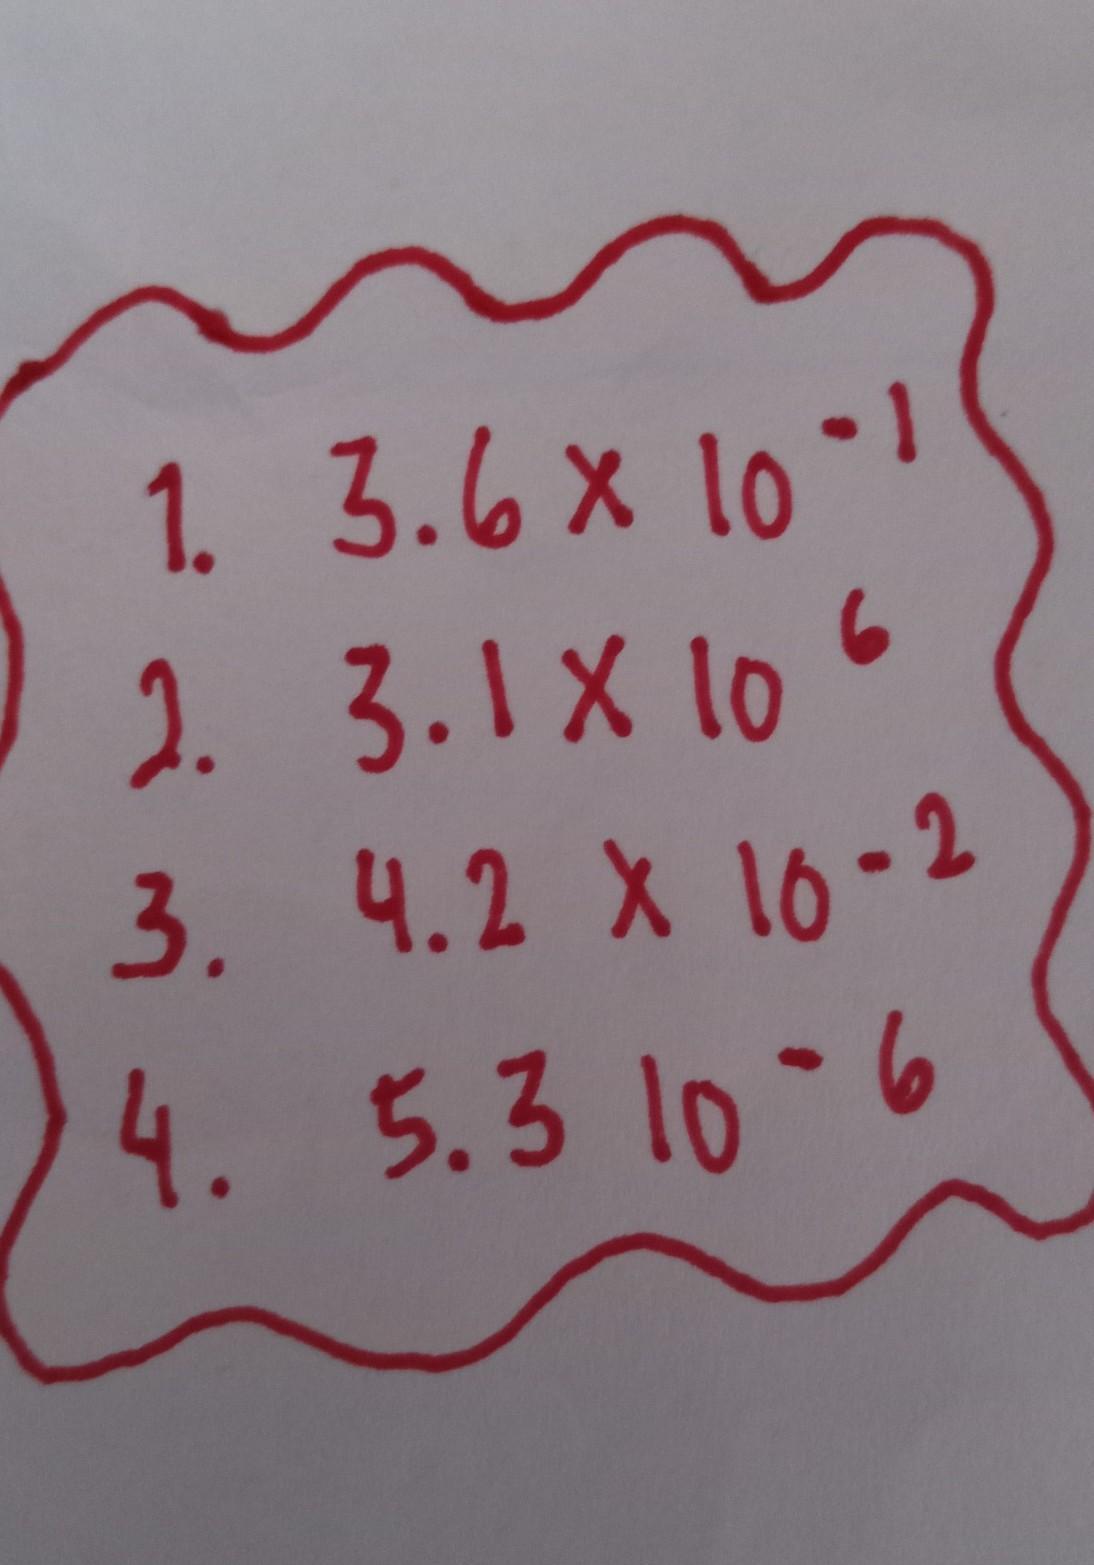 1. 3.6 x 10⁻¹
2. 3.1 x 10⁶
3. 4.2 x 10⁻²
4. 5.3 10⁻⁶